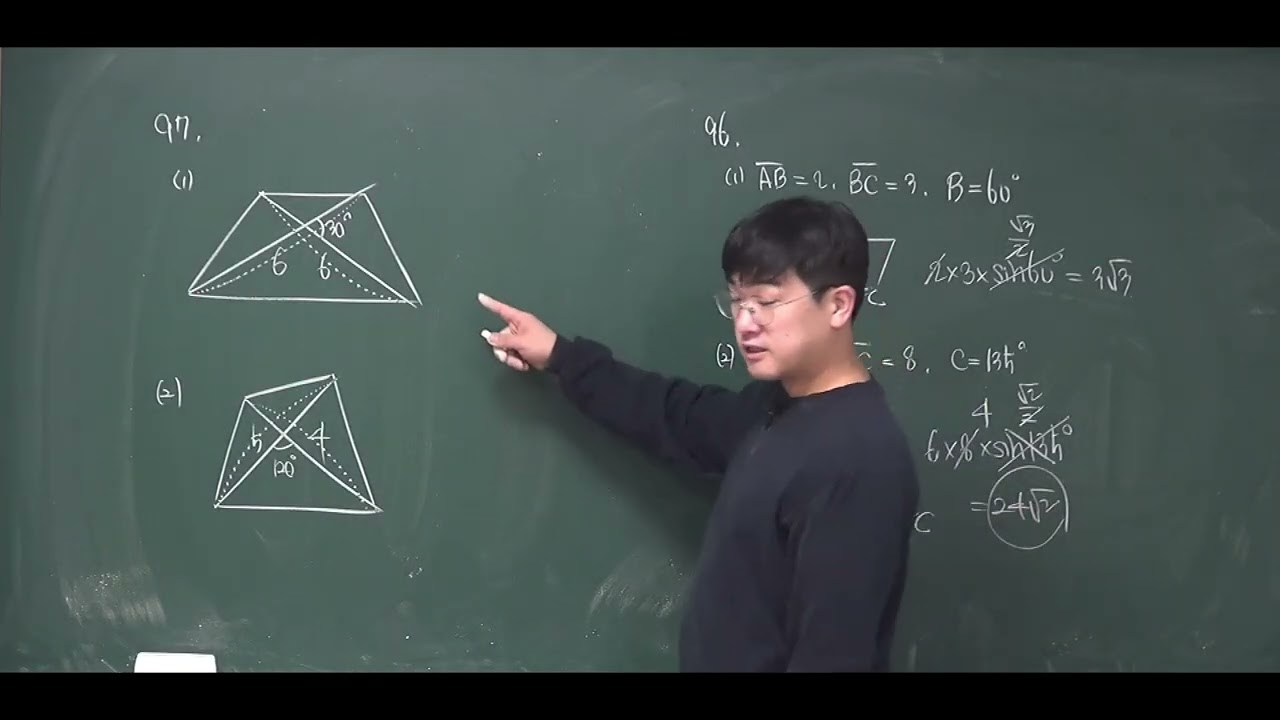 97.
(1)
30°
6 6
(2)
5 4
120°
96.
(1) A̅B̅ = 2, B̅C̅ = 3, B = 60°
√3/2
2×3×sin60° = 3√3
C
(2) C = 8, C = 135°
4 √2/2
6×8×sin135°
C = 24√2